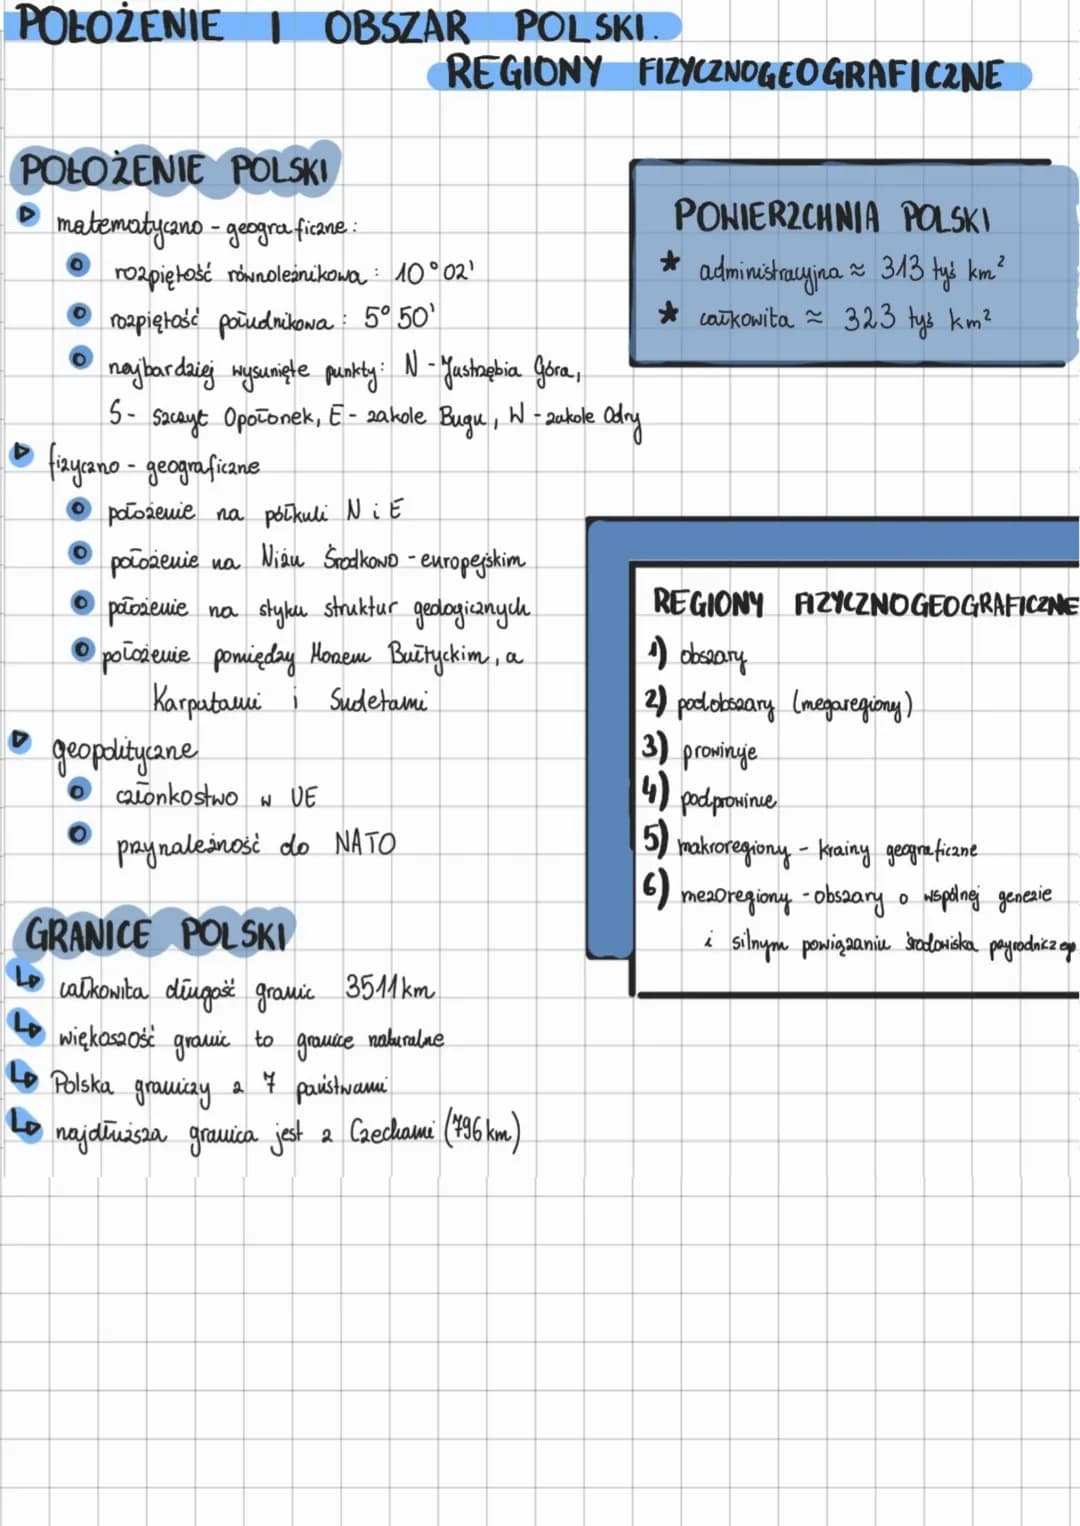 POŁOŻENIE I OBSZAR POLSKI.
REGIONY FIZYCZNOGEOGRAFICZNE
POŁOŻENIE POLSKI
matematyczno - geograficzne:
rozpiętość równoleżnikowa: 10°02'
rozpiętość południkowa: 5°50'
najbardziej wysunięte punkty: N - Jastrzębia Góra,
S - Szczyt Opołonek, E - zakole Bugu, W - zakole Odry
fizyczno - geograficzne
położenie na półkuli N i E
położenie na Niżu Środkowo - europejskim
położenie na styku struktur geologicznych
położenie pomiędzy Morzem Bałtyckim, a
Karpatami i Sudetami
geopolityczne
członkostwo w UE
przynależność do NATO
GRANICE POLSKI
całkowita długość granic 3511km
większość granic to granice naturalne
Polska graniczy z 7 państwami
najdłuższa granica jest z Czechami (796km)
POWIERZCHNIA POLSKI
★ administracyjna ≈ 313 tyś km²
★ całkowita ≈ 323 tyś km²
REGIONY FIZYCZNOGEOGRAFICZNE
1) obszary
2) podobszary (megaregiony)
3) prowincje
4) podprowince
5) makroregiony - krainy geograficzne
6) mezoregiony - obszary o wspólnej genezie
i silnym powiązaniu środowiska